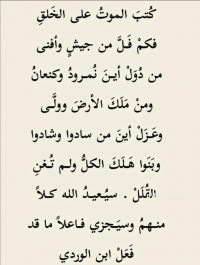 كُتبَ الموتُ على الخَلقِ
فكمْ فَلَّ من جيشٍ وأفنى
من دُوَلْ أينَ نُمرودُ وكنعانُ
ومنْ مَلَكَ الأرضَ وولَّى
وعـَزَلْ أينَ من سادوا وشادوا
وبَنَوا هَـلَـكَ الكلُّ ولـم تُـغنِ
القُلَلْ . سيُعيدُ الله كـلاً
منهـمُ وسيَـجزي فـاعلاً ما قد
فَعَلْ ابن الوردي